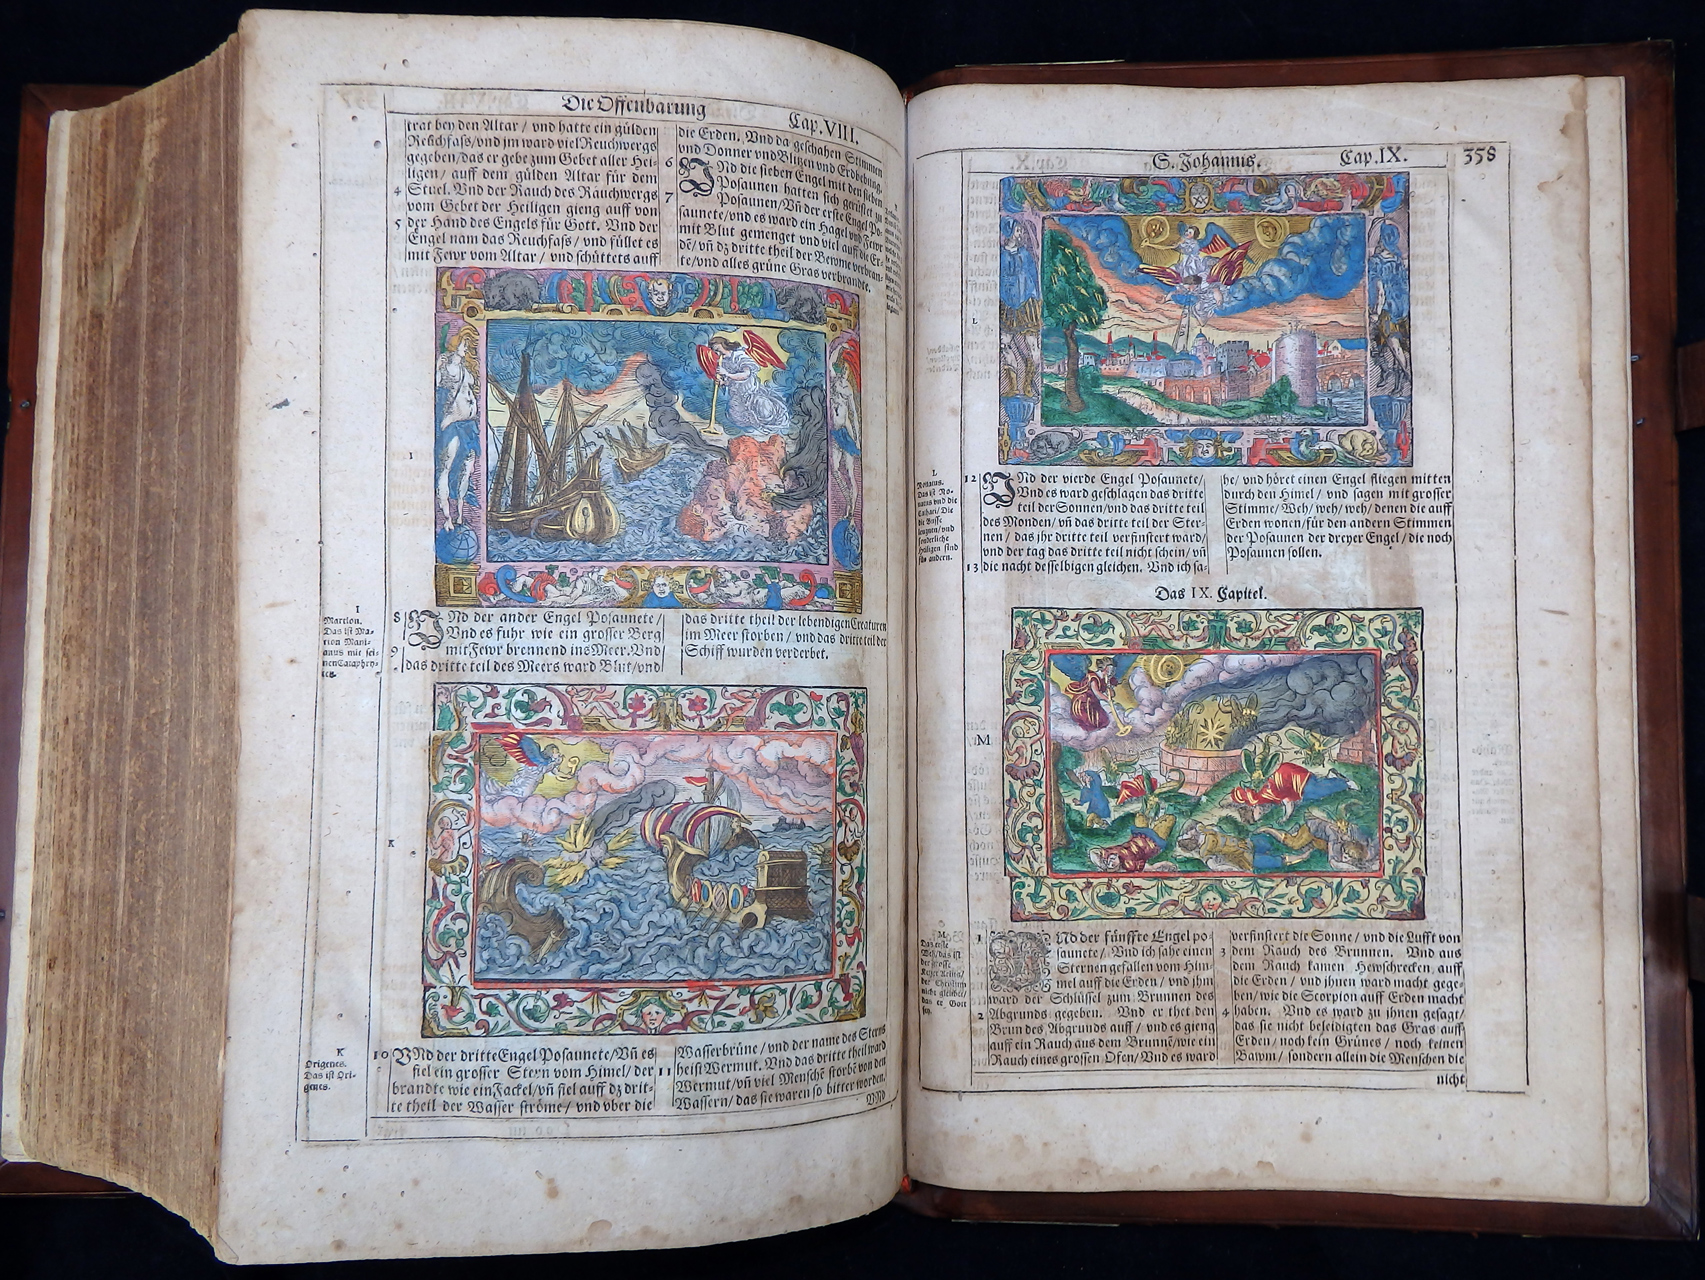 Die Offenbarung
Cap. VIII.
trat bey den Altar / vnd hatte ein gülden
Reuchfass/ vnd jm ward viel Reuchwergs
gegeben/ das er gebe zum Gebet aller Hei-
ligen / auff dem gülden Altar für dem
4 Stuel. Vnd der Rauch des Räuchwergs
vom Gebet der Heiligen gieng auff von
5 der Hand des Engels für Gott. Vnd der
Engel nam das Reuchfass / vnd füllet es
mit Fewr vom Altar / vnd schüttets auff
die Erden. Vnd da geschahen Stimmen
vnd Donner vnd Blitzen vnd Erdbebung.
6 VNd die sieben Engel mit den sieben
Posaunen hatten sich gerüstet zu
7 Posaunen/ Vñ der erste Engel Po-
saunete/ vnd es ward ein Hagel vnd Fewr
mit Blut gemenget vnd viel auff die Er-
dẽ/ vñ dz dritte theil der Bewme verbran-
te/ vnd alles grüne Gras verbrandte.
I
I
Das ist Ma-
8 VNd der ander Engel Posaunete/
Vnd es fuhr wie ein grosser Berg
9 mit Fewr brennend ins Meer. Vnd
das dritte teil des Meers ward Blut/ vnd
das dritte theil der lebendigen Creaturen
im Meer storben / vnd das dritte teil der
Schiff wurden verderbet.
K
K
Origenes.
Das ist Ori-
genes.
10 VNd der dritte Engel Posaunete/ Vñ es
fiel ein grosser Stern vom Himel/ der
brandte wie ein Fackel/ vñ fiel auff dz drit-
te theil der Wasser ströme/ vnd vber die
Wasserbrüne/ vnd der name des Sterns
11 heist Wermut. Vnd das dritte theil ward
Wermut/ vñ viel Menschẽ storbẽ von den
Wassern/ das sie waren so bitter worden.
VNd
S. Johannis.
Cap. IX.
358
L
L
Nouatus.
Das ist No-
uatus vnd die
Cathari/ Die
die Busse
leugnen/ vnd
sonderliche
Heiligen sind
für andern.
12 VNd der vierde Engel Posaunete/
Vnd es ward geschlagen das dritte
teil der Sonnen/ vnd das dritte teil
des Monden/ vñ das dritte teil der Ster-
nen / das jhr dritte teil verfinstert ward/
vnd der tag das dritte teil nicht schein/ vñ
13 die nacht desselbigen gleichen. Vnd ich sa-
he/ vnd höret einen Engel fliegen mitten
durch den Himel / vnd sagen mit grosser
Stimme/ Weh/ weh/ weh/ denen die auff
Erden wonen/ für den andern Stimmen
der Posaunen der dreyer Engel / die noch
Posaunen sollen.
Das IX. Capitel.
M
M
Das erste
Weh/ das ist
der grosse
Ketzer
das er Gott
sey.
1 VNd der fünffte Engel po-
saunete/ Vnd ich sahe einen
Sternen gefallen vom Him
mel auff die Erden / vnd jhm
ward der Schlüssel zum Brunnen des
2 Abgrunds gegeben. Vnd er thet den
Brun des Abgrunds auff / vnd es gieng
auff ein Rauch aus dem Brunnẽ/ wie ein
Rauch eines grossen Ofen/ Vnd es ward
verfinstert die Sonne/ vnd die Lufft von
3 dem Rauch des Brunnen. Vnd aus
dem Rauch kamen Hewschrecken auff
die Erden / vnd jhnen ward macht gege-
ben/ wie die Scorpion auff Erden macht
4 haben. Vnd es ward zu jhnen gesagt/
das sie nicht beleidigten das Gras auff
Erden / noch kein Grünes / noch keinen
Bawm/ sondern allein die Menschen die
nicht